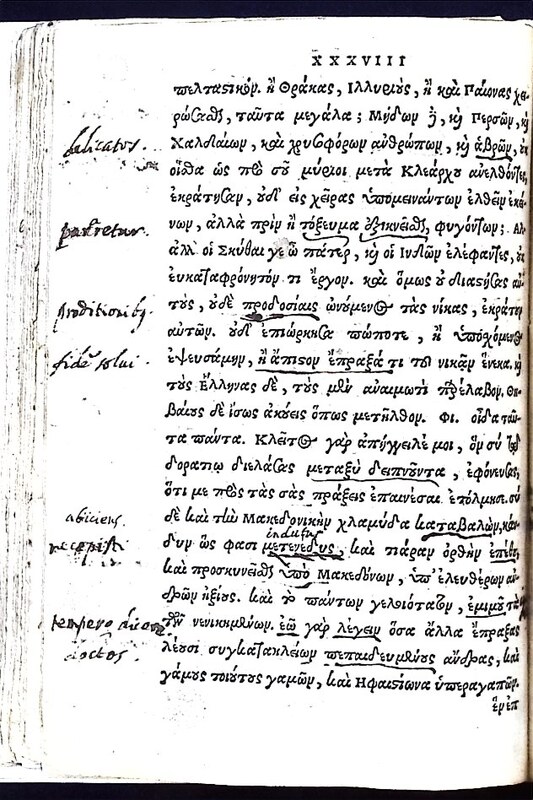 XXXVIII
πελταστικόν. ἢ Θρᾷκας, Ἰλλυριοὺς, ἢ καὶ Παίονας χει-
ρώσασθαι, ταῦτα μεγάλα; Μήδων δὲ, καὶ Περσῶν, καὶ
Χαλδαίων, καὶ χρυσοφόρων ἀνθρώπων, καὶ ἁβρῶν, οὐκ
delicatos.
οἶσθα ὡς πρὸ σοῦ μύριοι μετὰ Κλεάρχου ἀνελθόντες,
ἐκράτησαν, οὐδ' εἰς χεῖρας ὑπομεινάντων ἐλθεῖν ἐκεί-
νων, ἀλλὰ πρὶν ἢ τόξευμα ἐξικνεῖσθαι, φυγόντων; Αλ.
ἀλλ' οἱ Σκύθαι γε ὦ πάτερ, καὶ οἱ Ἰνδῶν ἐλέφαντες, οὐκ
εὐκαταφρόνητόν τι ἔργον. καὶ ὅμως οὐ διαστήσας αὐ-
τοὺς, οὐδὲ προδοσίαις ὠνούμενος τὰς νίκας, ἐκράτουν
proditionib9
αὐτῶν. οὐδ' ἐπιώρκησα πώποτε, ἢ ὑποσχόμενος
ἐψευσάμην, ἢ ἄπιστον ἔπραξά τι τοῦ νικᾶν ἕνεκα. καὶ
τοὺς Ἕλληνας δὲ, τοὺς μὲν ἀναιμωτὶ παρέλαβον. Θη-
βαίους δὲ ἴσως ἀκούεις ὅπως μετῆλθον. Φι. οἶδα ταῦ-
τα πάντα. Κλεῖτος γὰρ ἀπήγγειλέ μοι, ὃν σὺ τῷ
δορατίῳ διελάσας μεταξὺ δειπνοῦντα, ἐφόνευσας,
ὅτι με πρὸς τὰς σὰς πράξεις ἐπαινέσαι ἐτόλμησε. σὺ
δὲ καὶ τὴν Μακεδονικὴν χλαμύδα καταβαλὼν, κάν-
abiciens.
δυν ὥς φασι μετενέδυς, καὶ τιάραν ὀρθὴν ἐπέθου,
καὶ προσκυνεῖσθαι ὑπὸ Μακεδόνων, ὑπ' ἐλευθέρων ἀν-
δρῶν ἠξίους. καὶ τὸ πάντων γελοιότατον, ἐμιμοῦ τὰ
τῶν νενικημένων. ἐῶ γὰρ λέγειν ὅσα ἄλλα ἔπραξας
λέουσι συγκατακλείων πεπαιδευμένους ἄνδρας, καὶ
doctos.
γάμους τοιούτους γαμῶν, καὶ Ἡφαιστίωνα ὑπεραγαπῶν.
ἓν ἐπ